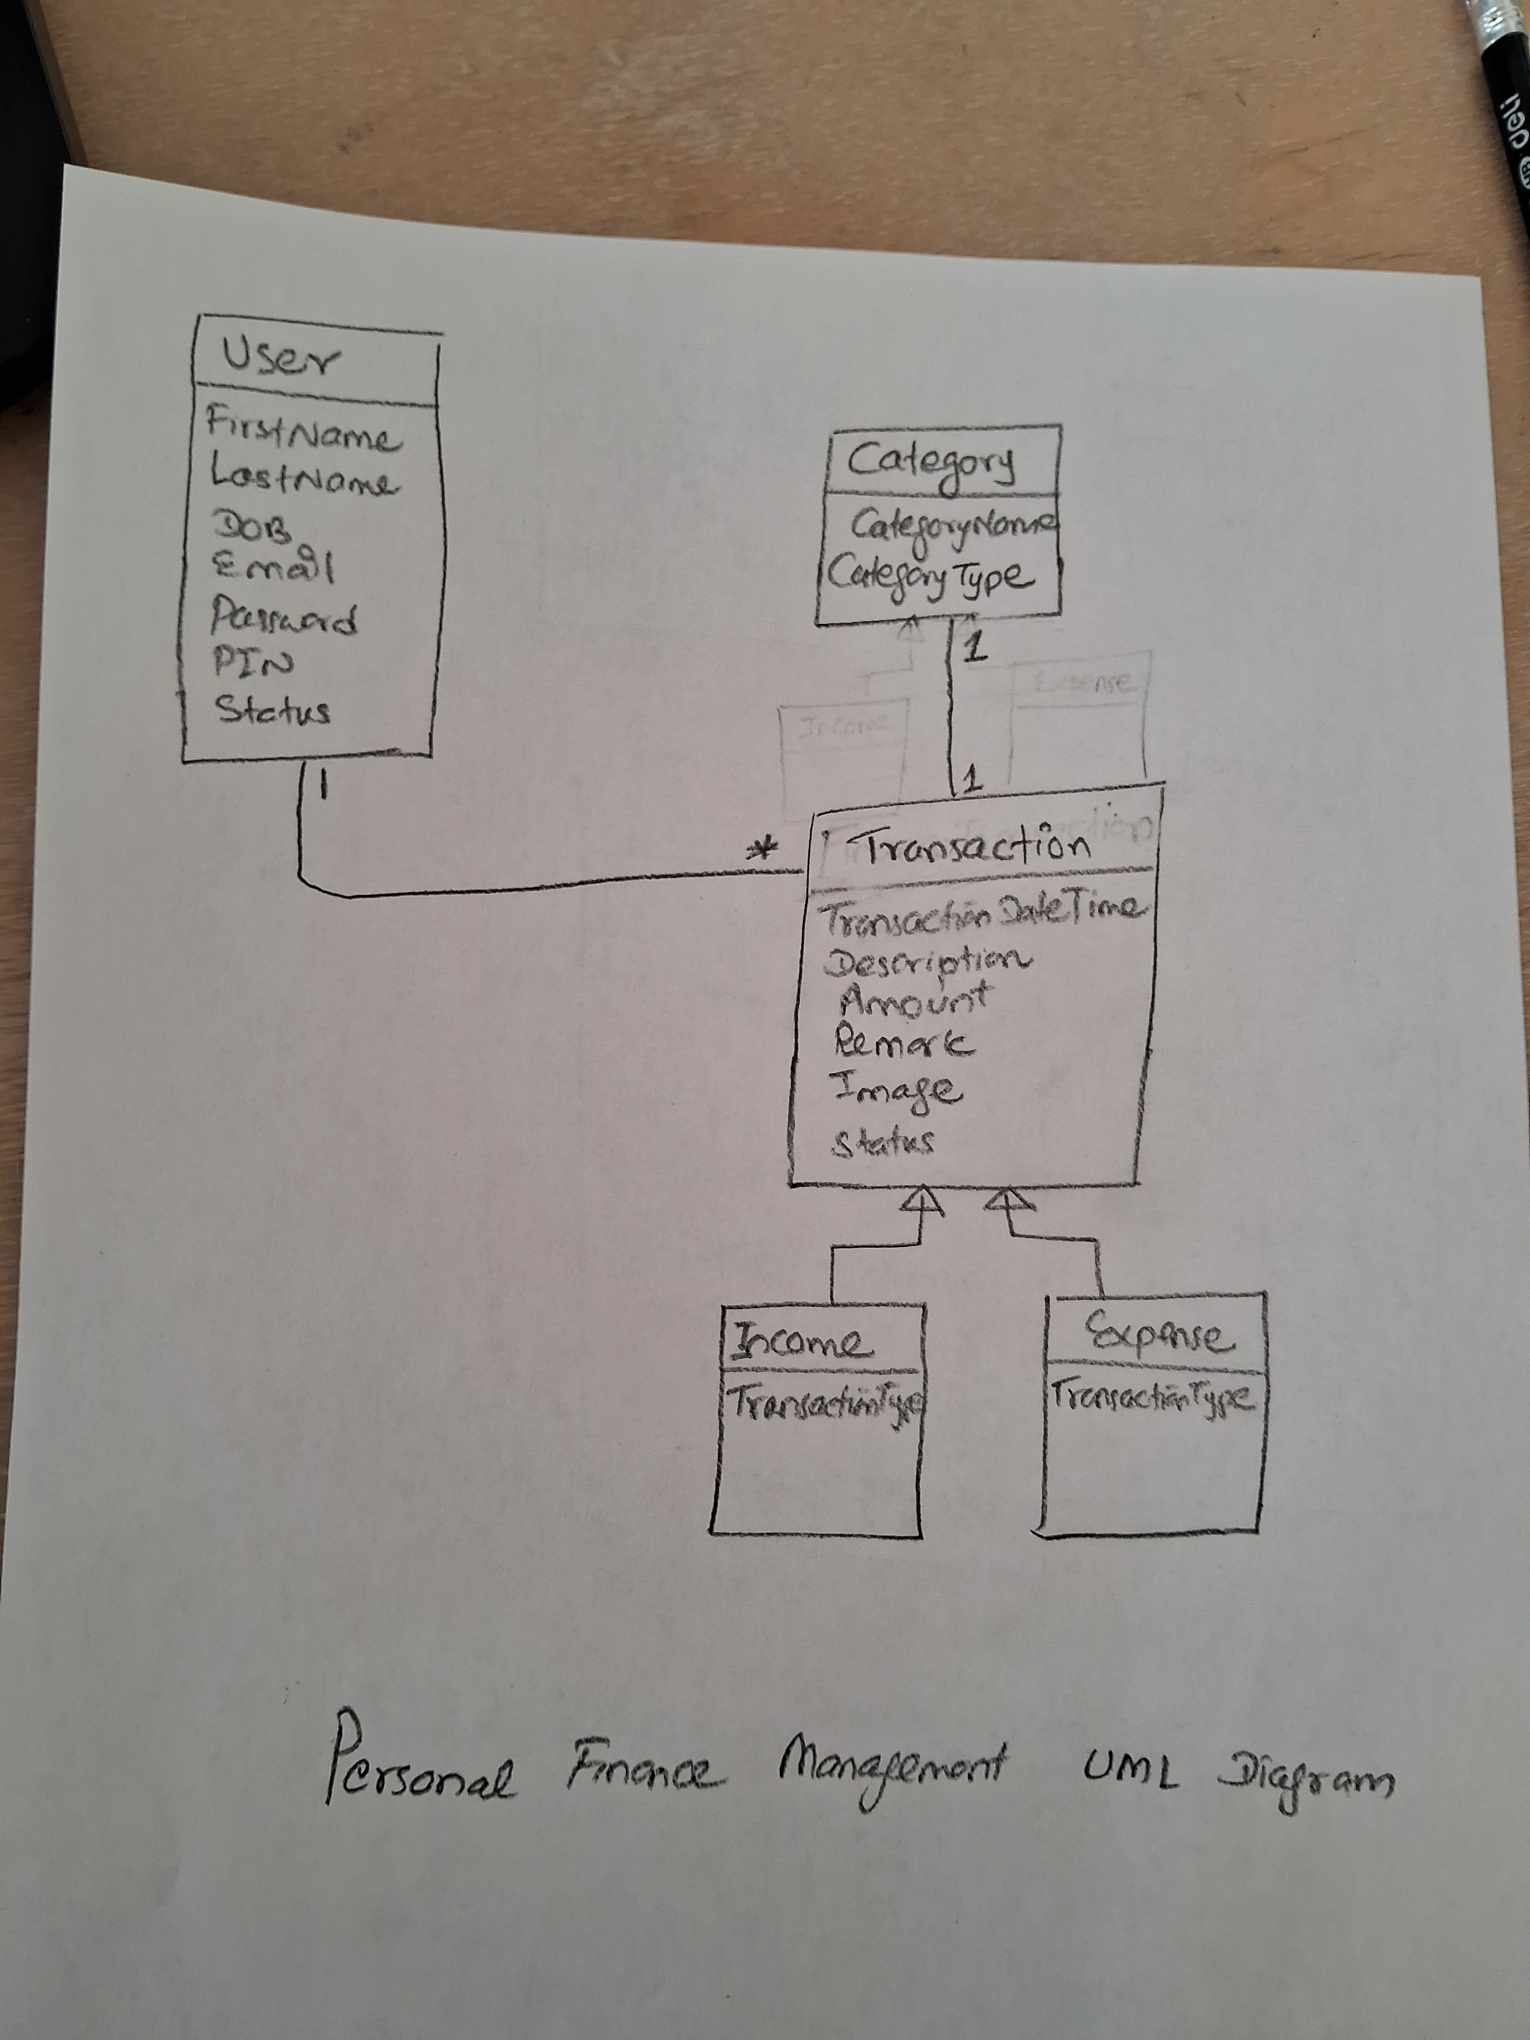 deli
User
FirstName
LastName
DOB
Email
Password
PIN
Status
1
*
Category
CategoryName
CategoryType
1
Income
Expense
1
Transaction
TransactionDateTime
Description
Amount
Remark
Image
Status
Income
TransactionType
Expense
TransactionType
Personal Finance Management UML Diagram